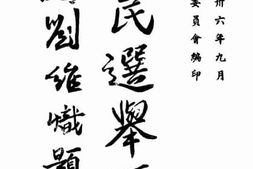 卅六年九月
委員會編印
民選舉
劉維熾題